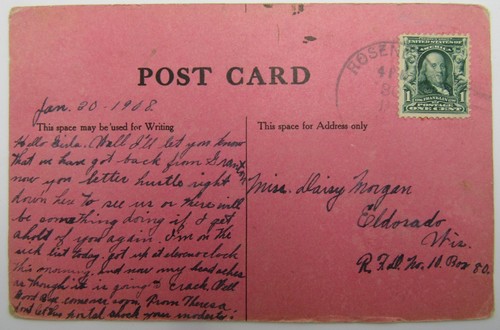 ROSEN
UNITED STATES OF
AMERICA
1 1
POSTAGE
ONE CENT
POST CARD
Jan. 20 - 1908.
This space may be used for Writing
This space for Address only
Hello Girls. Well I'll let you know
that we have got back from
now you better hustle right
down here to see us or there will
be something doing if I get
ahold of you again. I'm on the
sick list today. got up at eleven o'clock
this morning. and now my head aches
as though it is going to crack. Well
Good Bye come soon. From Theresa
dont let this postal shock your modesty!
Miss. Daisy Morgan
Eldorado
Wis.
R.F.D. No. 10. Box 80.